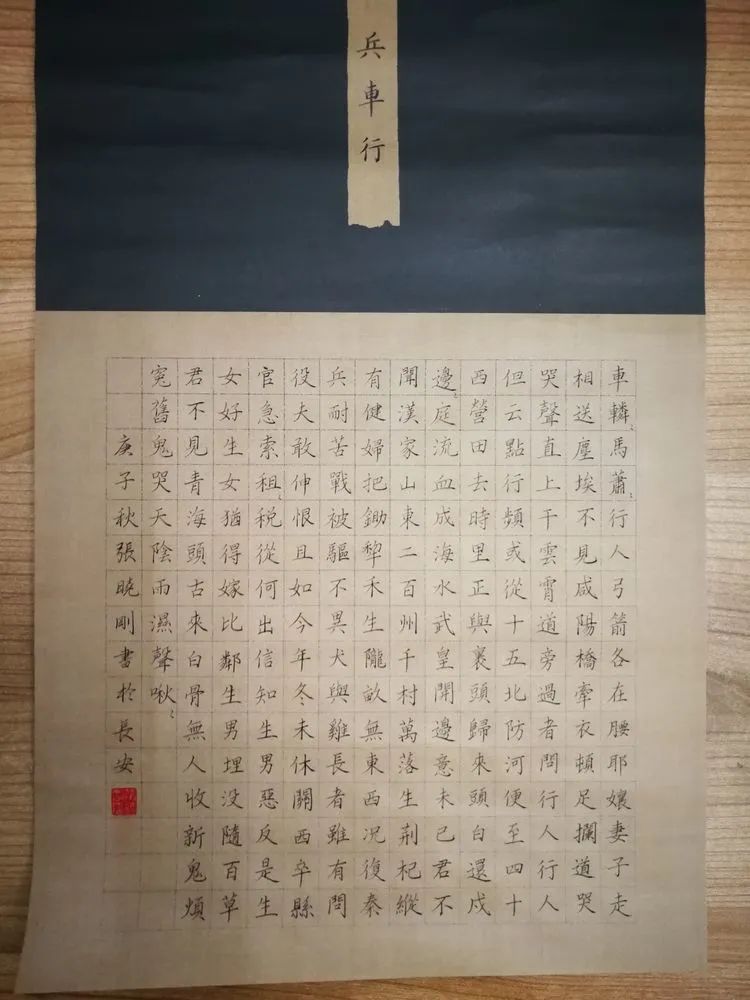 兵車行
車轔〻馬蕭〻行人弓箭各在腰耶孃妻子走
相送塵埃不見咸陽橋牽衣頓足攔道哭
哭聲直上干雲霄道旁過者問行人行人
但云點行頻或從十五北防河便至四十
西營田去時里正與裹頭歸來頭白還戍
邊〻庭流血成海水武皇開邊意未已君不
聞漢家山東二百州千村萬落生荆杞縱
有健婦把鋤犂禾生隴畝無東西況復秦
兵耐苦戰被驅不異犬與雞長者雖有問
役夫敢伸恨且如今年冬未休關西卒縣
官急索租〻税從何出信知生男惡反是生
女好生女猶得嫁比鄰生男埋没隨百草
君不見青海頭古來白骨無人收新鬼煩
寃舊鬼哭天陰雨濕聲啾〻
庚子秋張曉剛書於長安